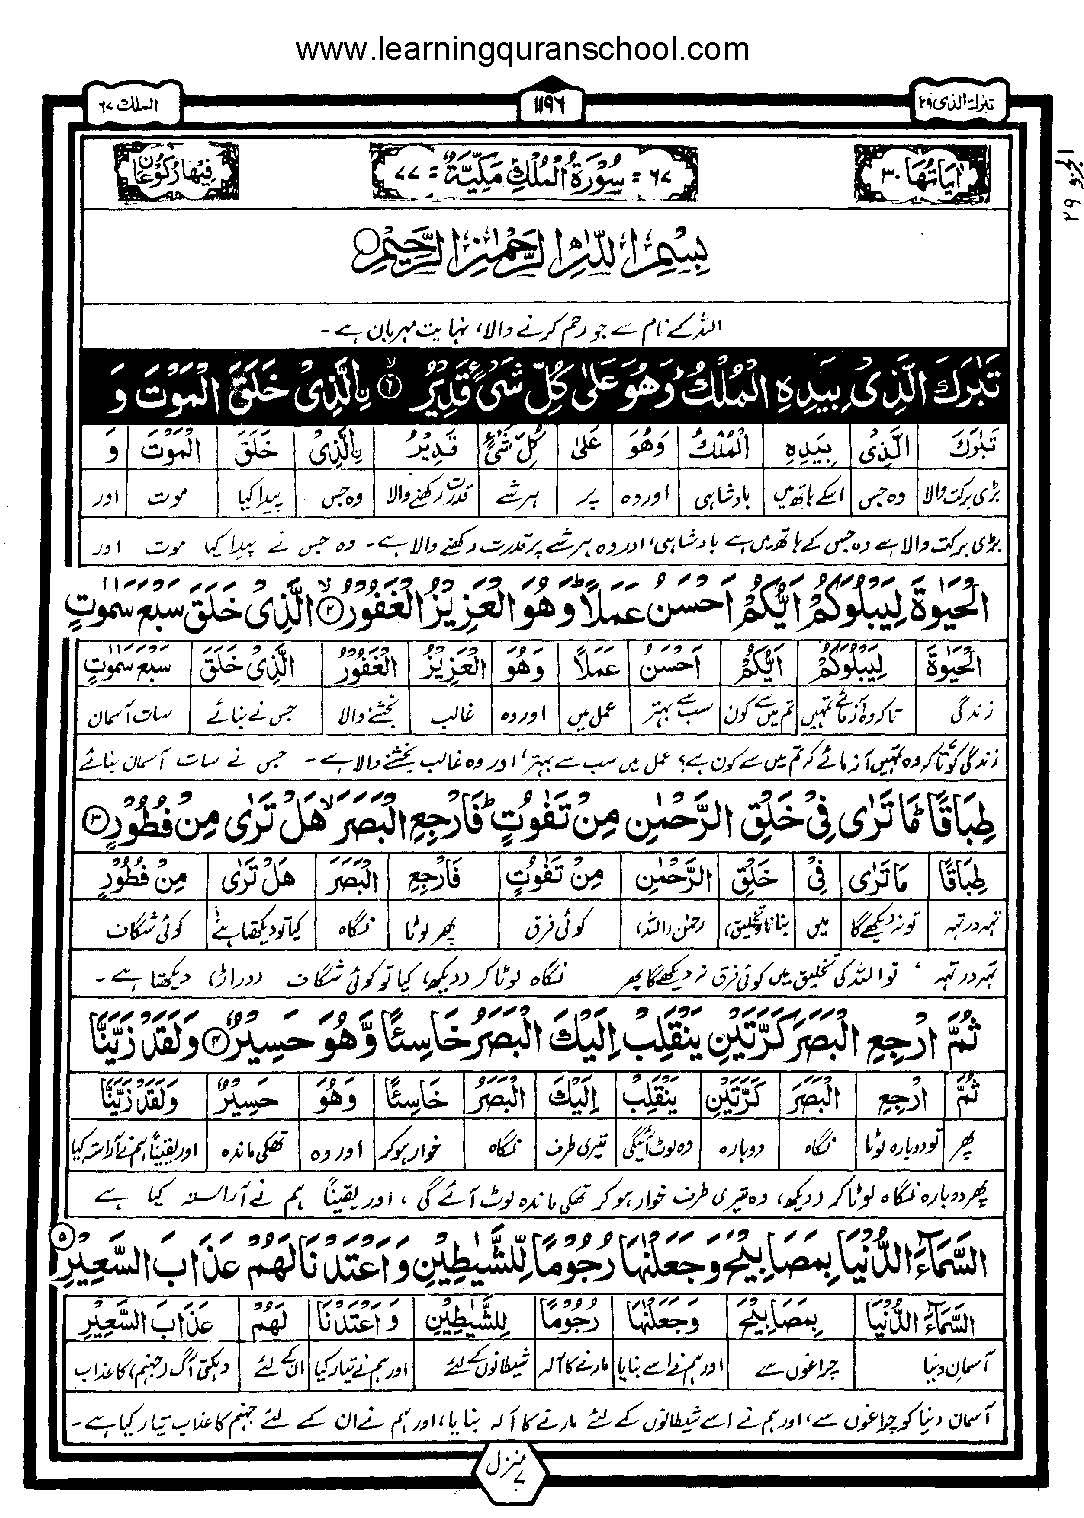 www.learningquranschool.com
تبٰرك الذی ۲۹
۱۱۹۶
الملك ۶۷
اٰیاتُها ۳۰
۶۷ = سُوْرَةُ الْمُلْكِ مَكِّيَّةٌ = ۷۷
فِيْهَا رُكُوْعَانِ
الجزء ۲۹
بِسْمِ اللّٰهِ الرَّحْمٰنِ الرَّحِيْمِ
اللہ کے نام سے جو رحم کرنے والا، نہایت مہربان ہے۔
تَبٰرَكَ الَّذِىْ بِيَدِهِ الْمُلْكُ ۫ وَهُوَ عَلٰى كُلِّ شَىْءٍ قَدِيْرُۨ ۙ﴿۱﴾ الَّذِىْ خَلَقَ الْمَوْتَ وَ
تَبٰرَكَ الَّذِىْ بِيَدِهِ الْمُلْكُ وَهُوَ عَلٰى كُلِّ شَىْءٍ قَدِيْرُ ۨالَّذِىْ خَلَقَ الْمَوْتَ وَ
بڑی برکت والا وہ جس اسکے ہاتھ میں بادشاہی اور وہ پر ہر شے قدرت رکھنے والا وہ جس پیدا کیا موت اور
بڑی برکت والا ہے وہ جس کے ہاتھ میں ہے بادشاہی، اور وہ ہر شے پر قدرت رکھنے والا ہے۔ وہ جس نے پیدا کیا موت اور
الْحَيٰوةَ لِيَبْلُوَكُمْ اَيُّكُمْ اَحْسَنُ عَمَلًا ؕ وَهُوَ الْعَزِيْزُ الْغَفُوْرُ ۙ﴿۲﴾ الَّذِىْ خَلَقَ سَبْعَ سَمٰوٰتٍ
الْحَيٰوةَ لِيَبْلُوَكُمْ اَيُّكُمْ اَحْسَنُ عَمَلًا وَهُوَ الْعَزِيْزُ الْغَفُوْرُ الَّذِىْ خَلَقَ سَبْعَ سَمٰوٰتٍ
زندگی تاکہ وہ آزمائے تمہیں تم میں سے کون سب سے بہتر عمل میں اور وہ غالب بخشنے والا جس نے بنائے سات آسمان
زندگی کو تاکہ وہ تمہیں آزمائے کہ تم میں سے کون ہے؟ عمل میں سب سے بہتر، اور وہ غالب بخشنے والا ہے۔ جس نے سات آسمان بنائے
طِبَاقًا ؕ مَا تَرٰى فِىْ خَلْقِ الرَّحْمٰنِ مِنْ تَفٰوُتٍ ؕ فَارْجِعِ الْبَصَرَ ۙ هَلْ تَرٰى مِنْ فُطُوْرٍ ﴿۳﴾
طِبَاقًا مَا تَرٰى فِىْ خَلْقِ الرَّحْمٰنِ مِنْ تَفٰوُتٍ فَارْجِعِ الْبَصَرَ هَلْ تَرٰى مِنْ فُطُوْرٍ
تہہ در تہہ تو نہ دیکھے گا میں بنانا (تخلیق) رحمٰن (اللہ) کوئی فرق پھر لوٹا نگاہ کیا تو دیکھتا ہے کوئی شگاف
تہہ در تہہ، تو اللہ کی تخلیق میں کوئی فرق نہ دیکھے گا پھر نگاہ لوٹا کر (دیکھ) کیا تو کوئی شگاف (دراڑ) دیکھتا ہے۔
ثُمَّ ارْجِعِ الْبَصَرَ كَرَّتَيْنِ يَنْقَلِبْ اِلَيْكَ الْبَصَرُ خَاسِئًا وَّهُوَ حَسِيْرٌ ﴿۴﴾ وَلَقَدْ زَيَّنَّا
ثُمَّ ارْجِعِ الْبَصَرَ كَرَّتَيْنِ يَنْقَلِبْ اِلَيْكَ الْبَصَرُ خَاسِئًا وَّهُوَ حَسِيْرٌ وَلَقَدْ زَيَّنَّا
پھر تو دوبارہ لوٹا نگاہ دوبارہ وہ لوٹ آئیگی تیری طرف نگاہ خوار ہو کر اور وہ تھکی ماندہ اور یقیناً ہم نے آراستہ کیا
پھر دوبارہ نگاہ لوٹا کر (دیکھ)، وہ تیری طرف خوار ہو کر تھکی ماندہ لوٹ آئے گی، اور یقیناً ہم نے آراستہ کیا ہے
السَّمَآءَ الدُّنْيَا بِمَصَابِيْحَ وَجَعَلْنٰهَا رُجُوْمًا لِّلشَّيٰطِيْنِ وَاَعْتَدْنَا لَهُمْ عَذَابَ السَّعِيْرِ ﴿۵﴾
السَّمَآءَ الدُّنْيَا بِمَصَابِيْحَ وَجَعَلْنٰهَا رُجُوْمًا لِّلشَّيٰطِيْنِ وَاَعْتَدْنَا لَهُمْ عَذَابَ السَّعِيْرِ
آسمان دنیا چراغوں سے اور ہم نے اسے بنایا مارنے کا آلہ شیطانوں کے لئے اور ہم نے تیار کیا ان کے لئے دہکتی آگ (جہنم) کا عذاب
آسمان دنیا کو چراغوں سے، اور ہم نے اسے شیطانوں کے لئے مارنے کا آلہ بنایا، اور ہم نے ان کے لئے جہنم کا عذاب تیار کیا ہے۔
منزل ۷